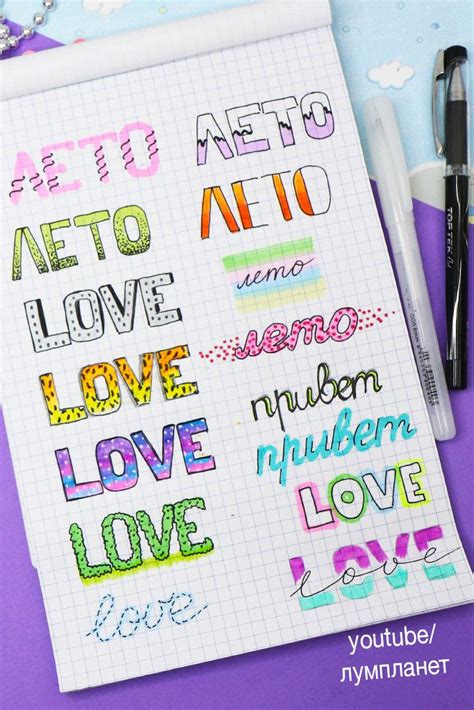 ЛЕТО
ЛЕТО
LOVE
LOVE
LOVE
LOVE
love
ЛЕТО
ЛЕТО
лето
лето
привет
привет
LOVE
LOVE
love
TOPTEK
youtube/
лумпланет